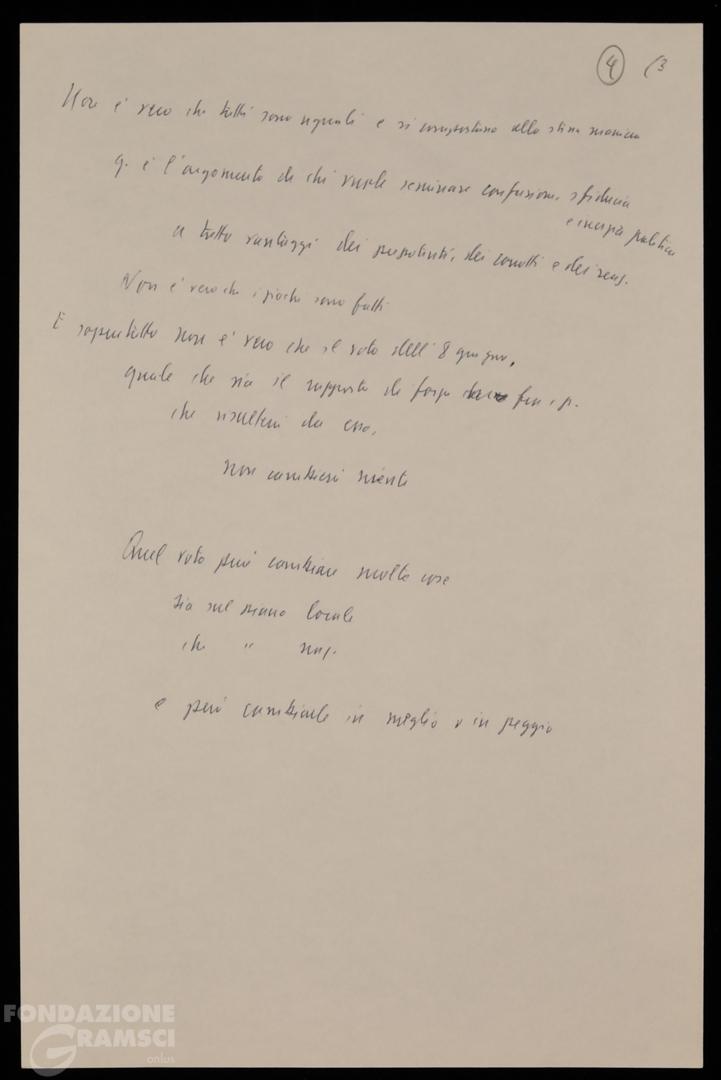 4 (3
Non è vero che tutti sono uguali e si comportano allo stesso
q. è l'argomento di chi vuole seminare confusione, sfiducia
e inerzia politica
a tutto vantaggio dei prepotenti, dei corrotti e dei reaz.
Non è vero che i giochi sono fatti
E soprattutto non è vero che il voto dell'8 giugno,
quale che sia il rapporto di forza fra i p.
che risulterà da esso,
non cambierà niente
Quel voto può cambiare molte cose
sia sul piano locale
che " naz.
e può cambiarle in meglio o in peggio
FONDAZIONE
GRAMSCI
onlus